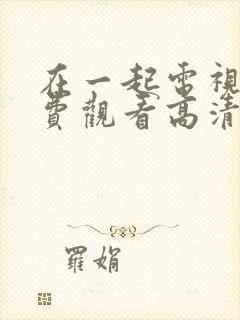 在一起電視
費觀看高清
羅娟